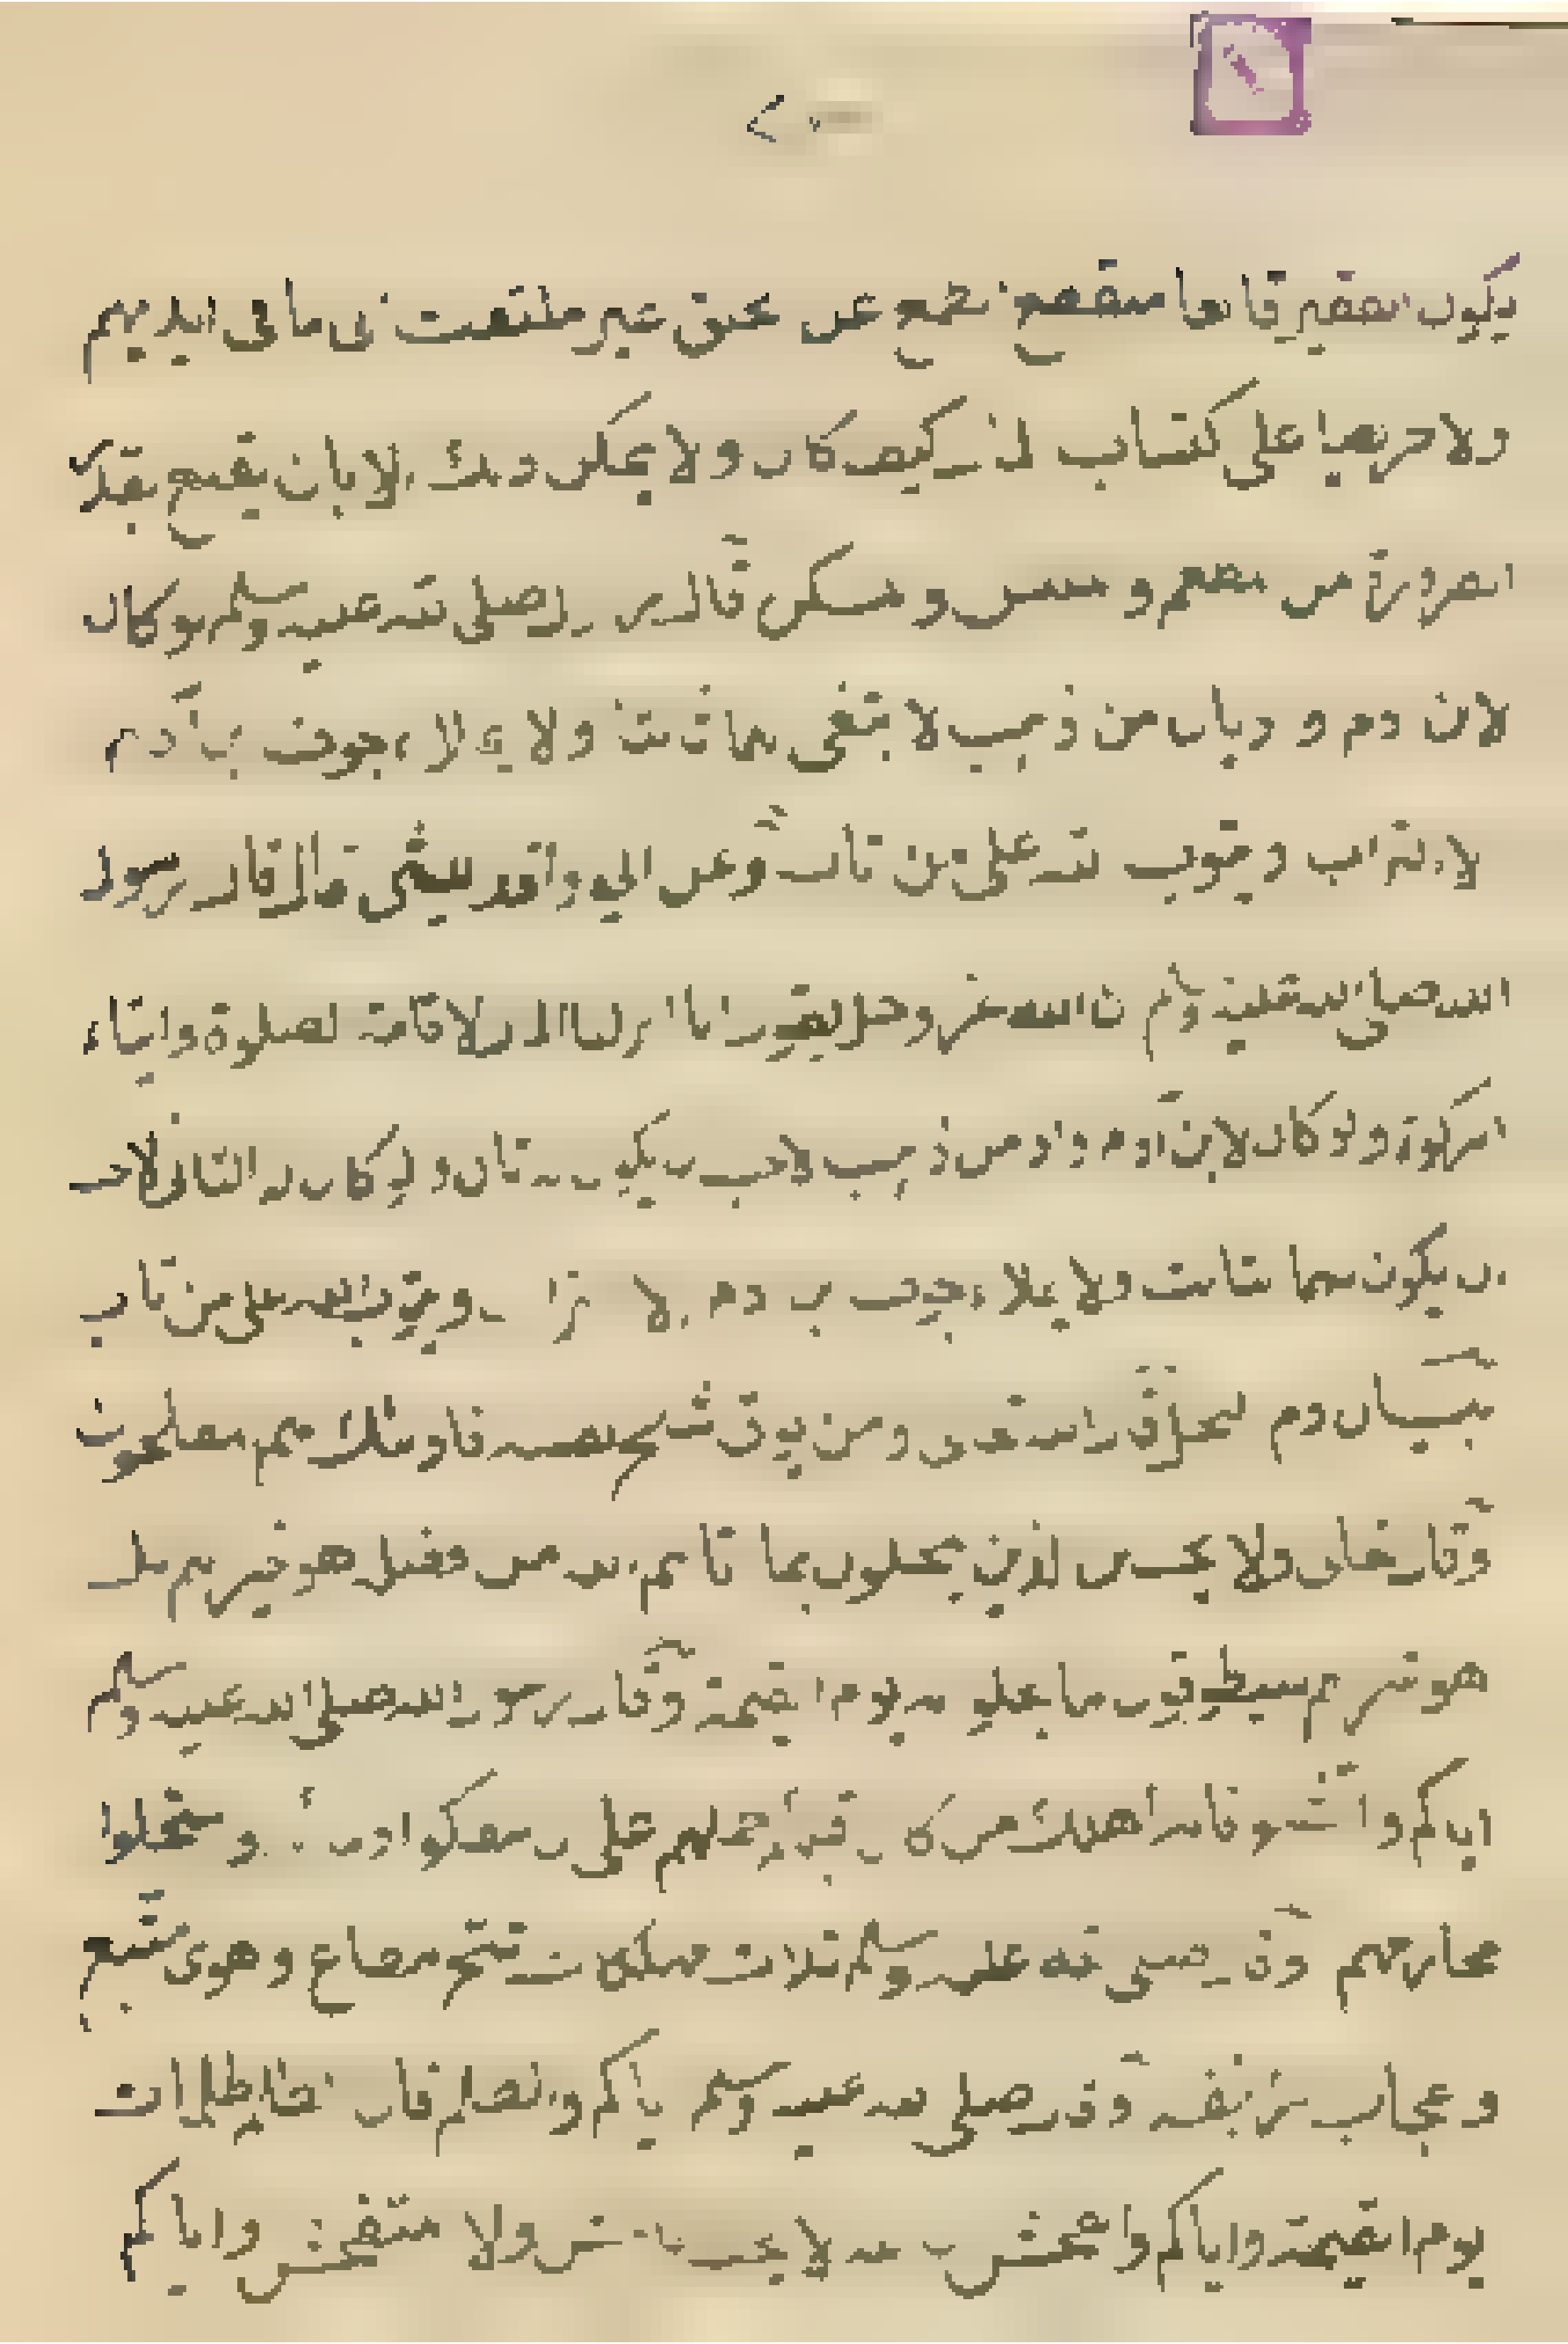 يكون الفقير قانعا منقطع الطمع عن الخلق غير ملتفت الى ما فى ايديهم
ولا حريصا على اكتساب المال كيف كان ولا يمكن ذلك الا بان يقنع بقدر
الضرورة من المطعم والملبس والمسكن قال صلى الله عليه وسلم لو كان
لابن ادم واديان من ذهب لابتغى لهما ثالثا ولا يملاء جوف ابن ادم
الا التراب ويتوب الله على من تاب وعن ابى واقد الليثى قال قال رسول
الله صلى الله عليه وسلم ان الله عز وجل يقول انا انزلنا المال لاقامة الصلوة وايتاء
الزكوة ولو كان لابن ادم واد من ذهب لاحب ان يكون له ثان ولو كان له الثانى لاحب
ان يكون لهما ثالث ولا يملاء جوف ابن ادم الا التراب ويتوب الله على من تاب
بيان ذم البخل قال الله تعالى ومن يوق شح نفسه فاولئك هم المفلحون
وقال تعالى ولا يحسبن الذين يبخلون بما اتاهم الله من فضله هو خير لهم بل
هو شر لهم سيطوقون ما بخلوا به يوم القيمة وقال رسول الله صلى الله عليه وسلم
اياكم والشح فانه اهلك من كان قبلكم حملهم على ان سفكوا دماءهم واستحلوا
محارمهم وقال صلى الله عليه وسلم ثلاث مهلكات شح مطاع وهوى متبع
واعجاب المرء بنفسه وقال صلى الله عليه وسلم اياكم والظلم فان الظلم ظلمات
يوم القيمة واياكم والفحش فان الله لا يحب الفاحش ولا المتفحش واياكم